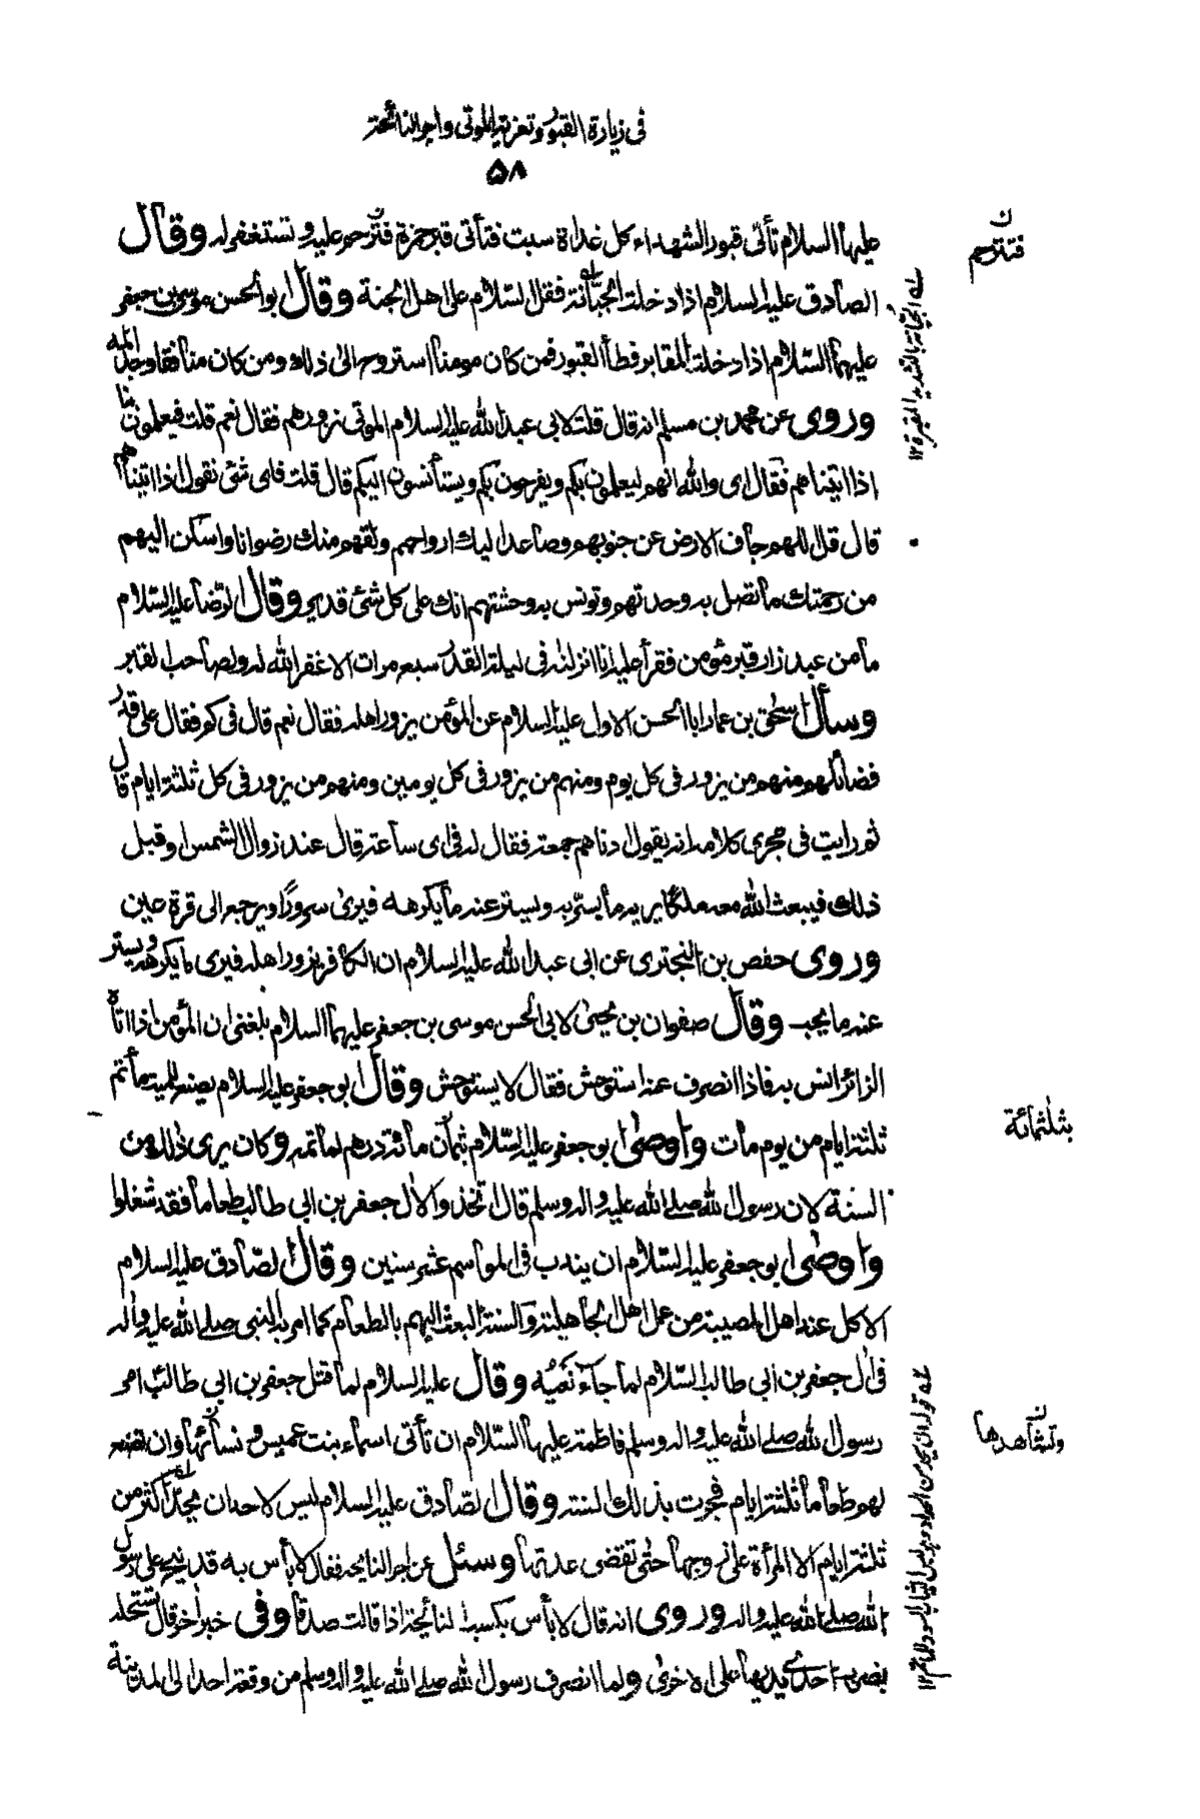 في زيارة القبور وتعزية الموتى واجر النائحة
۵۸
عليها السلام تأتى قبور الشهداء كل غداة سبت فتأتى قبر حمزة فترحم عليه و تستغفر له وقال
الصادق عليه السلام اذا دخلت الجبّانة فقل السّلام على اهل الجنة وقال ابو الحسن موسى بن جعفر
عليهما السّلام اذا دخلت المقابر فطأ القبور فمن كان مومنا استروح الى ذلك ومن كان منافقا وجد المه
وروى عن محمد بن مسلم انه قال قلت لابى عبد الله عليه السلام الموتى نزورهم فقال نعم قلت فيعلمون بنا
اذا اتيناهم فقال اى والله انهم ليعلمون بكم ويفرحون بكم ويستأنسون اليكم قال قلت فاى شئ نقول اذا اتيناهم
قال قل اللهم جاف الارض عن جنوبهم وصاعد اليك ارواحهم ولقهم منك رضوانا واسكن اليهم
من رحمتك ما تصل به وحدتهم وتونس به وحشتهم انك على كل شئ قدير وقال الرّضا عليه السّلام
ما من عبد زار قبر مؤمن فقرأ عليه انا انزلنه فى ليلة القدر سبع مرات الا غفر الله له ولصاحب القبر
وسأل اسحق بن عمار ابا الحسن الاول عليه السلام عن المؤمن يزور اهله فقال نعم قال فى كم فقال على قدر
فضائلهم ومنهم من يزور فى كل يوم ومنهم من يزور فى كل يومين ومنهم من يزور فى كل ثلثة ايام قال
ثم رايت فى مجرى كلامه انه يقول ادناهم جمعة فقال له فى اى ساعة قال عند زوال الشمس او قبل
ذلك فيبعث الله معه ملكا يريه ما يسّر به ويستر عنه ما يكرهه فيرى سرورًا ويرجع الى قرة عين
وروى حفص بن البختري عن ابى عبد الله عليه السلام ان الكافر يزور اهله فيرى ما يكرهه ويستر
عنه ما يحب وقال صفوان بن يحيى لابى الحسن موسى بن جعفر عليهما السلام بلغنى ان المؤمن اذا اتاه
الزائر انس به فاذا انصرف عنه استوحش فقال لا يستوحش وقال ابو جعفر عليه السلام يصنع للميت مأتم
ثلثة ايام من يوم مات واوصى ابو جعفر عليه السّلام بثمان مائة درهم لمأتمه وكان يرى ذلك من
السنة لان رسول الله صلے الله عليه واله وسلم قال اتخذوا لال جعفر بن ابى طالب طعاما فقد شغلوا
واوصى ابو جعفر عليه السّلام ان يندب فى المواسم عشر سنين وقال الصّادق عليه السلام
الاكل عند اهل المصيبة من عمل اهل الجاهلية والسنة البعث اليهم بالطعام كما امر به النبى صلے الله عليه واله
فى ال جعفر بن ابى طالب السّلام لما جاء نعيّه وقال عليه السلام لما قتل جعفر بن ابى طالب امر
رسول الله صلے الله عليه واله وسلم فاطمة عليها السّلام ان تأتى اسماء بنت عميس و نسائها وان تصنع
لهم طعاما ثلثة ايام فجرت بذلك السنة وقال الصّادق عليه السلام ليس لاحد ان يحدّ اكثر من
ثلثة ايام الا المرأة على زوجها حتى تقضى عدتها وسئل عن اجر النايحة فقال لا بأس به قد نيح على رسول
الله صلے الله عليه واله وروى انه قال لا بأس بكسب النائحة اذا قالت صدقا وفى خبر اخر قال تستحله
بضرب احدى يديها على الاخرى ولما انصرف رسول الله صلے الله عليه واله وسلم من وقعة احد الى المدينة
ن
فتترحم
له الجبّانة بالتشديد المقبرة ١٢
بثلثمائة
ن
وتشاهدها